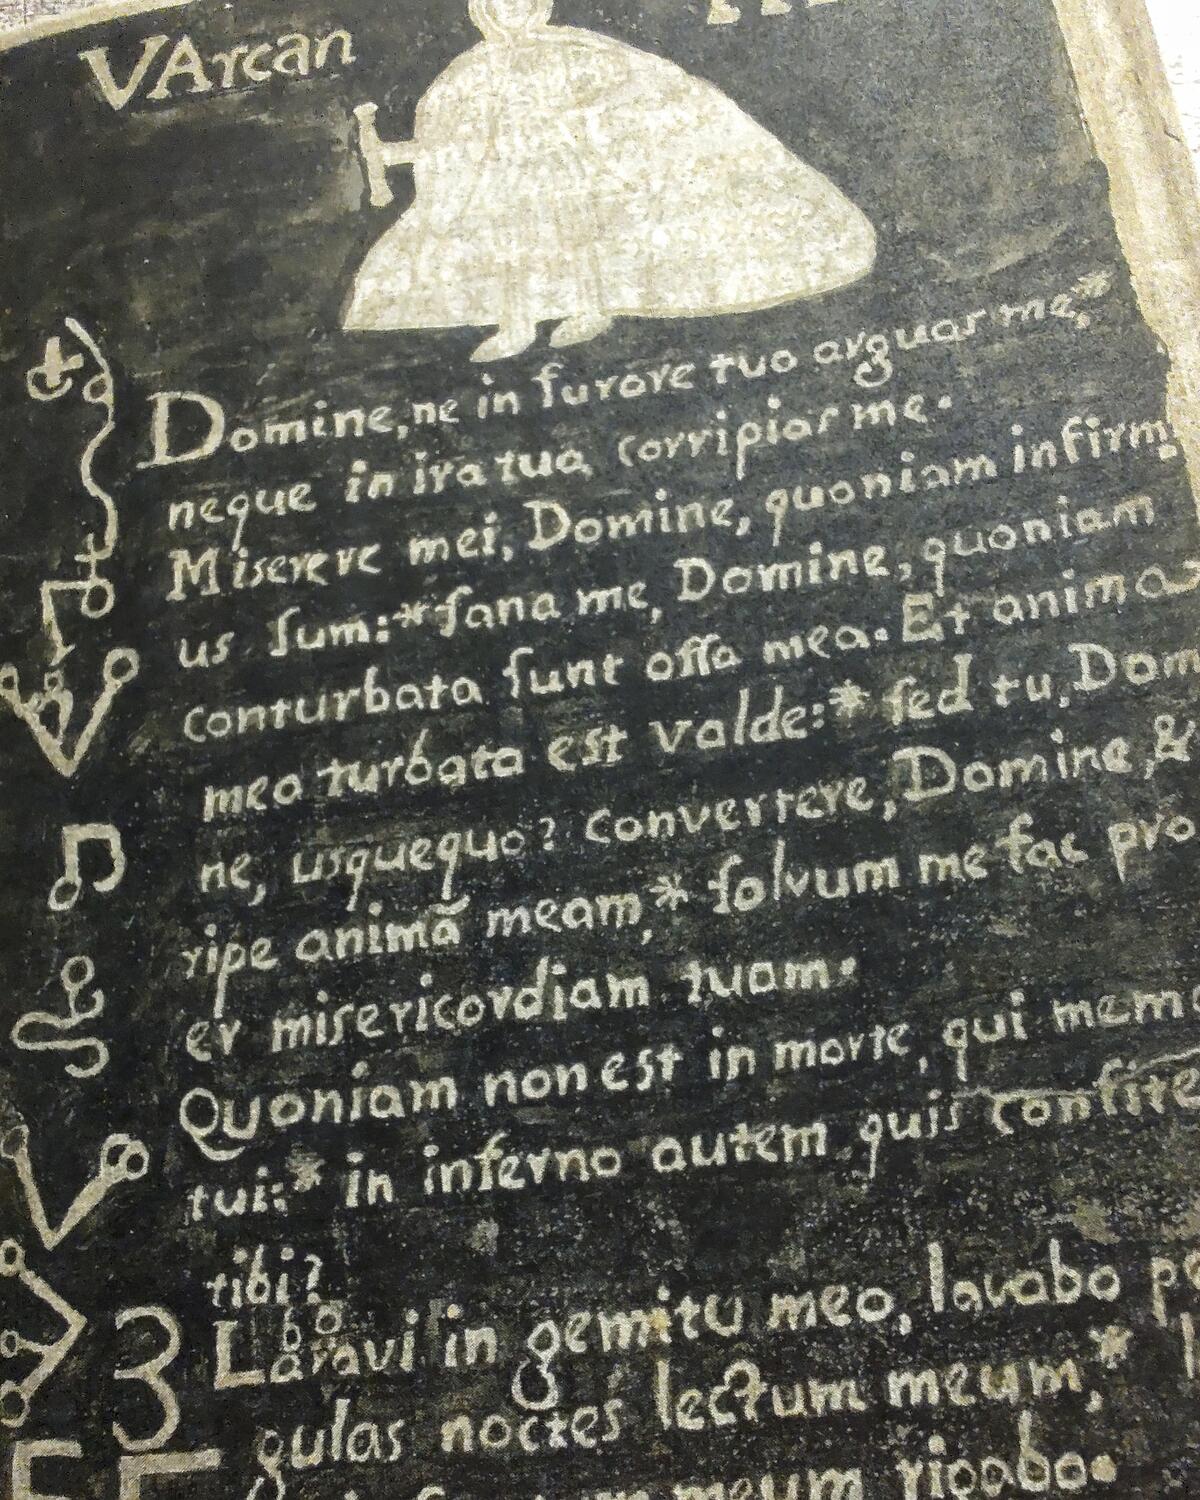 VArcan
Domine, ne in furore tuo arguas me,*
neque in ira tua corripias me.
Miserere mei, Domine, quoniam infirm
us ſum:* ſana me, Domine, quoniam
conturbata ſunt oſſa mea. Et anima
mea turbata est valde:* ſed tu, Dom
ne, usquequo? Convertere, Domine, &
ripe animã meam,* ſalvum me fac pro
er miſericordiam tuam.
Quoniam non est in morte, qui mem
tui:* in inferno autem quis confite
tibi?
Laravi in gemitu meo, lavabo pe
bo
3
gulas noctes lectum meum,*
meum rigabo.